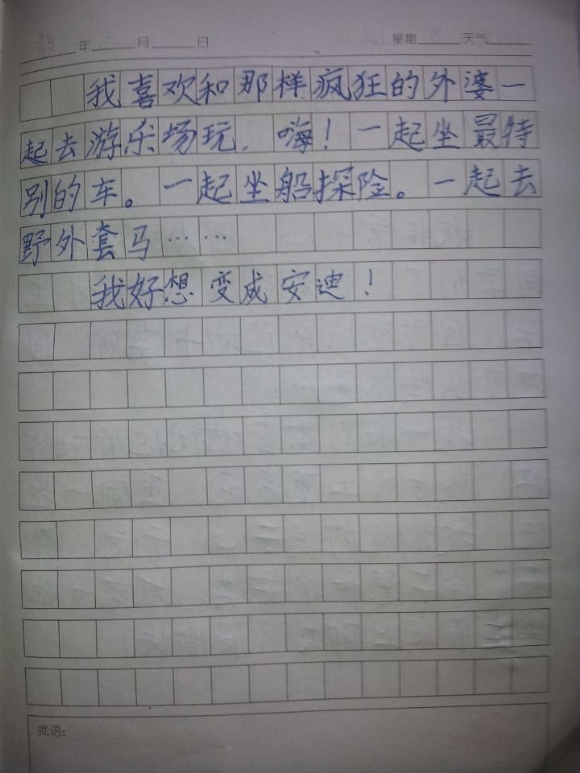 年 月 日 星期 天气
我喜欢和那样疯狂的外婆一
起去游乐场玩. 嗨！一起坐最特
别的车。一起坐船探险。一起去
野外套马……
我好想变成安迪！
批语：